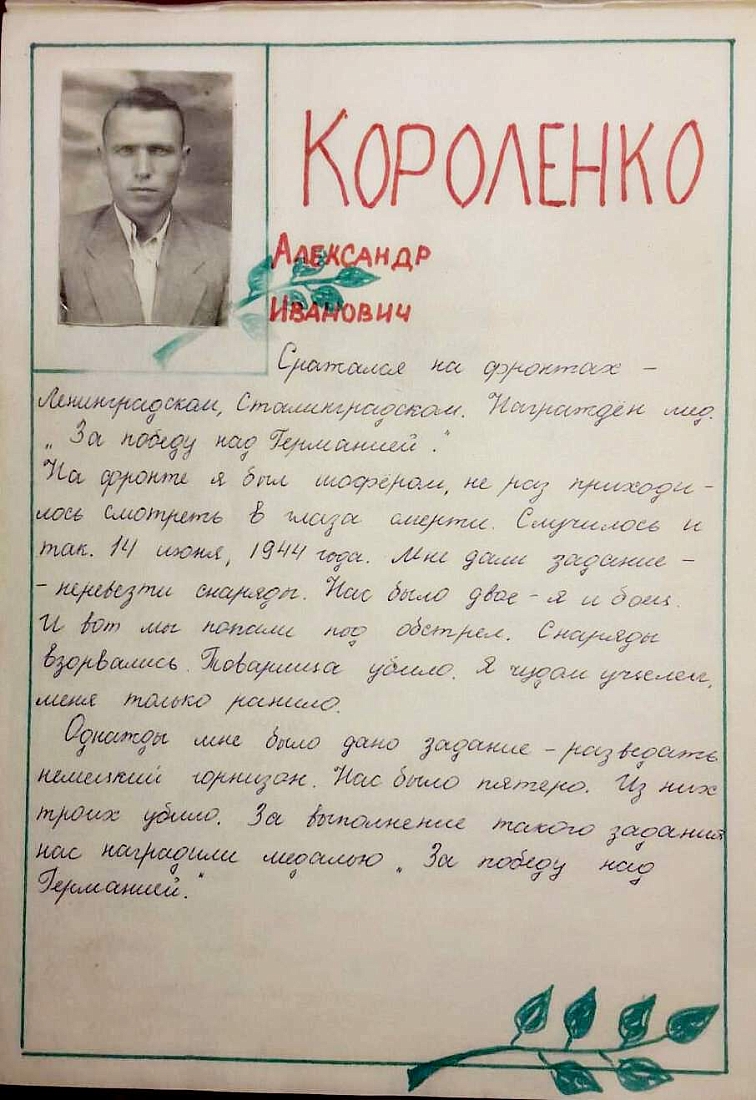 КОРОЛЕНКО
АЛЕКСАНДР
ИВАНОВИЧ
Сражался на фронтах –
Ленинградском, Сталинградском. Награждён мед.
„За победу над Германией."
На фронте я был шофёром, не раз приходи-
лось смотреть в глаза смерти. Случилось и
так. 14 июня, 1944 года. Мне дали задание –
– перевезти снаряды. Нас было двое – я и боец.
И вот мы попали под обстрел. Снаряды
взорвались. Товарища убило. Я чудом уцелел,
меня только ранило.
Однажды мне было дано задание – разведать
немецкий горнизон. Нас было пятеро. Из них
троих убило. За выполнение такого задания
нас наградили медалью „За победу над
Германией."